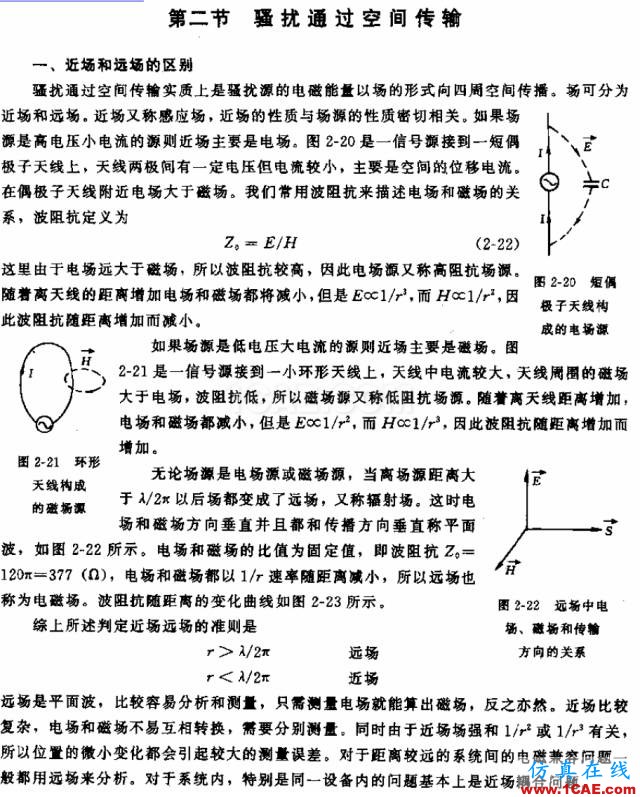 第二节 骚扰通过空间传输
一、近场和远场的区别
骚扰通过空间传输实质上是骚扰源的电磁能量以场的形式向四周空间传播。场可分为
近场和远场。近场又称感应场，近场的性质与场源的性质密切相关。如果场
源是高电压小电流的源则近场主要是电场。图 2-20 是一信号源接到一短偶
极子天线上，天线两极间有一定电压但电流较小，主要是空间的位移电流。
在偶极子天线附近电场大于磁场。我们常用波阻抗来描述电场和磁场的关
系，波阻抗定义为
Z₀ = E/H (2-22)
这里由于电场远大于磁场，所以波阻抗较高，因此电场源又称高阻抗场源。
随着离天线的距离增加电场和磁场都将减小，但是 E∝1/r³，而 H∝1/r²，因
此波阻抗随距离增加而减小。
I
E
C
I
图 2-20 短偶
极子天线构
成的电场源
如果场源是低电压大电流的源则近场主要是磁场。图
2-21 是一信号源接到一小环形天线上，天线中电流较大，天线周围的磁场
大于电场，波阻抗低，所以磁场源又称低阻抗场源。随着离天线距离增加，
电场和磁场都减小，但是 E∝1/r²，而 H∝1/r³，因此波阻抗随距离增加而
增加。
I
H
图 2-21 环形
天线构成
的磁场源
无论场源是电场源或磁场源，当离场源距离大
于 λ/2π 以后场都变成了远场，又称辐射场。这时电
场和磁场方向垂直并且都和传播方向垂直称平面
波，如图 2-22 所示。电场和磁场的比值为固定值，即波阻抗 Z₀=
120π=377 (Ω)，电场和磁场都以 1/r 速率随距离减小，所以远场也
称为电磁场。波阻抗随距离的变化曲线如图 2-23 所示。
E
S
H
图 2-22 远场中电
场、磁场和传输
方向的关系
综上所述判定近场远场的准则是
r > λ/2π 远场
r < λ/2π 近场
远场是平面波，比较容易分析和测量，只需测量电场就能算出磁场，反之亦然。近场比较
复杂，电场和磁场不易互相转换，需要分别测量。同时由于近场场强和 1/r² 或 1/r³ 有关，
所以位置的微小变化都会引起较大的测量误差。对于距离较远的系统间的电磁兼容问题一
般都用远场来分析。对于系统内，特别是同一设备内的问题基本上是近场耦合问题
仿真在线
www.1CAE.com